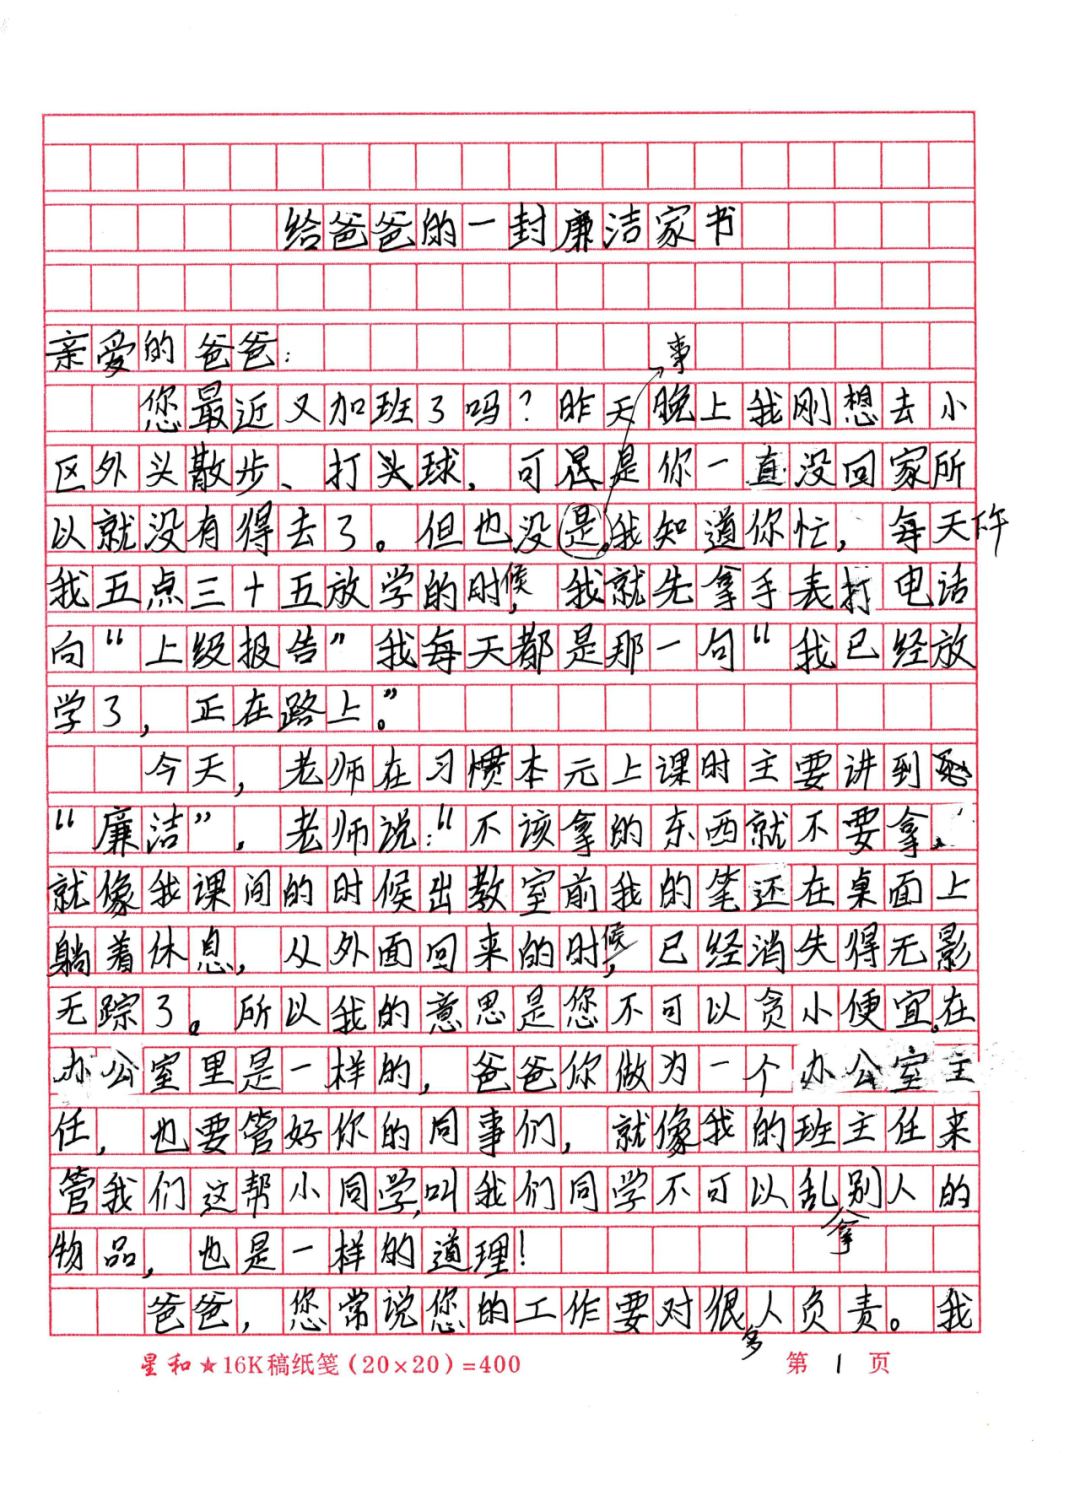 给爸爸的一封廉洁家书
亲爱的爸爸：
事
您最近又加班了吗？昨天晚上我刚想去小
区外头散步、打头球，可是是你一直没回家所
以就没有得去了。但也没是，我知道你忙，每天下午
我五点三十五放学的时候，我就先拿手表打电话
向“上级报告”我每天都是那一句“我已经放
学了，正在路上。”
今天，老师在习惯本元上课时主要讲到
“廉洁”，老师说：“不该拿的东西就不要拿。
就像我课间的时候出教室前我的笔还在桌面上
躺着休息，从外面回来的时候，已经消失得无影
无踪了。所以我的意思是您不可以贪小便宜。在
办公室里是一样的，爸爸你做为一个办公室主
任，也要管好你的同事们，就像我的班主任来
管我们这帮小同学，叫我们同学不可以乱别人的
拿
物品，也是一样的道理！
爸爸，您常说您的工作要对很人负责。我
多
星和★16K稿纸笺(20×20)=400 第1页